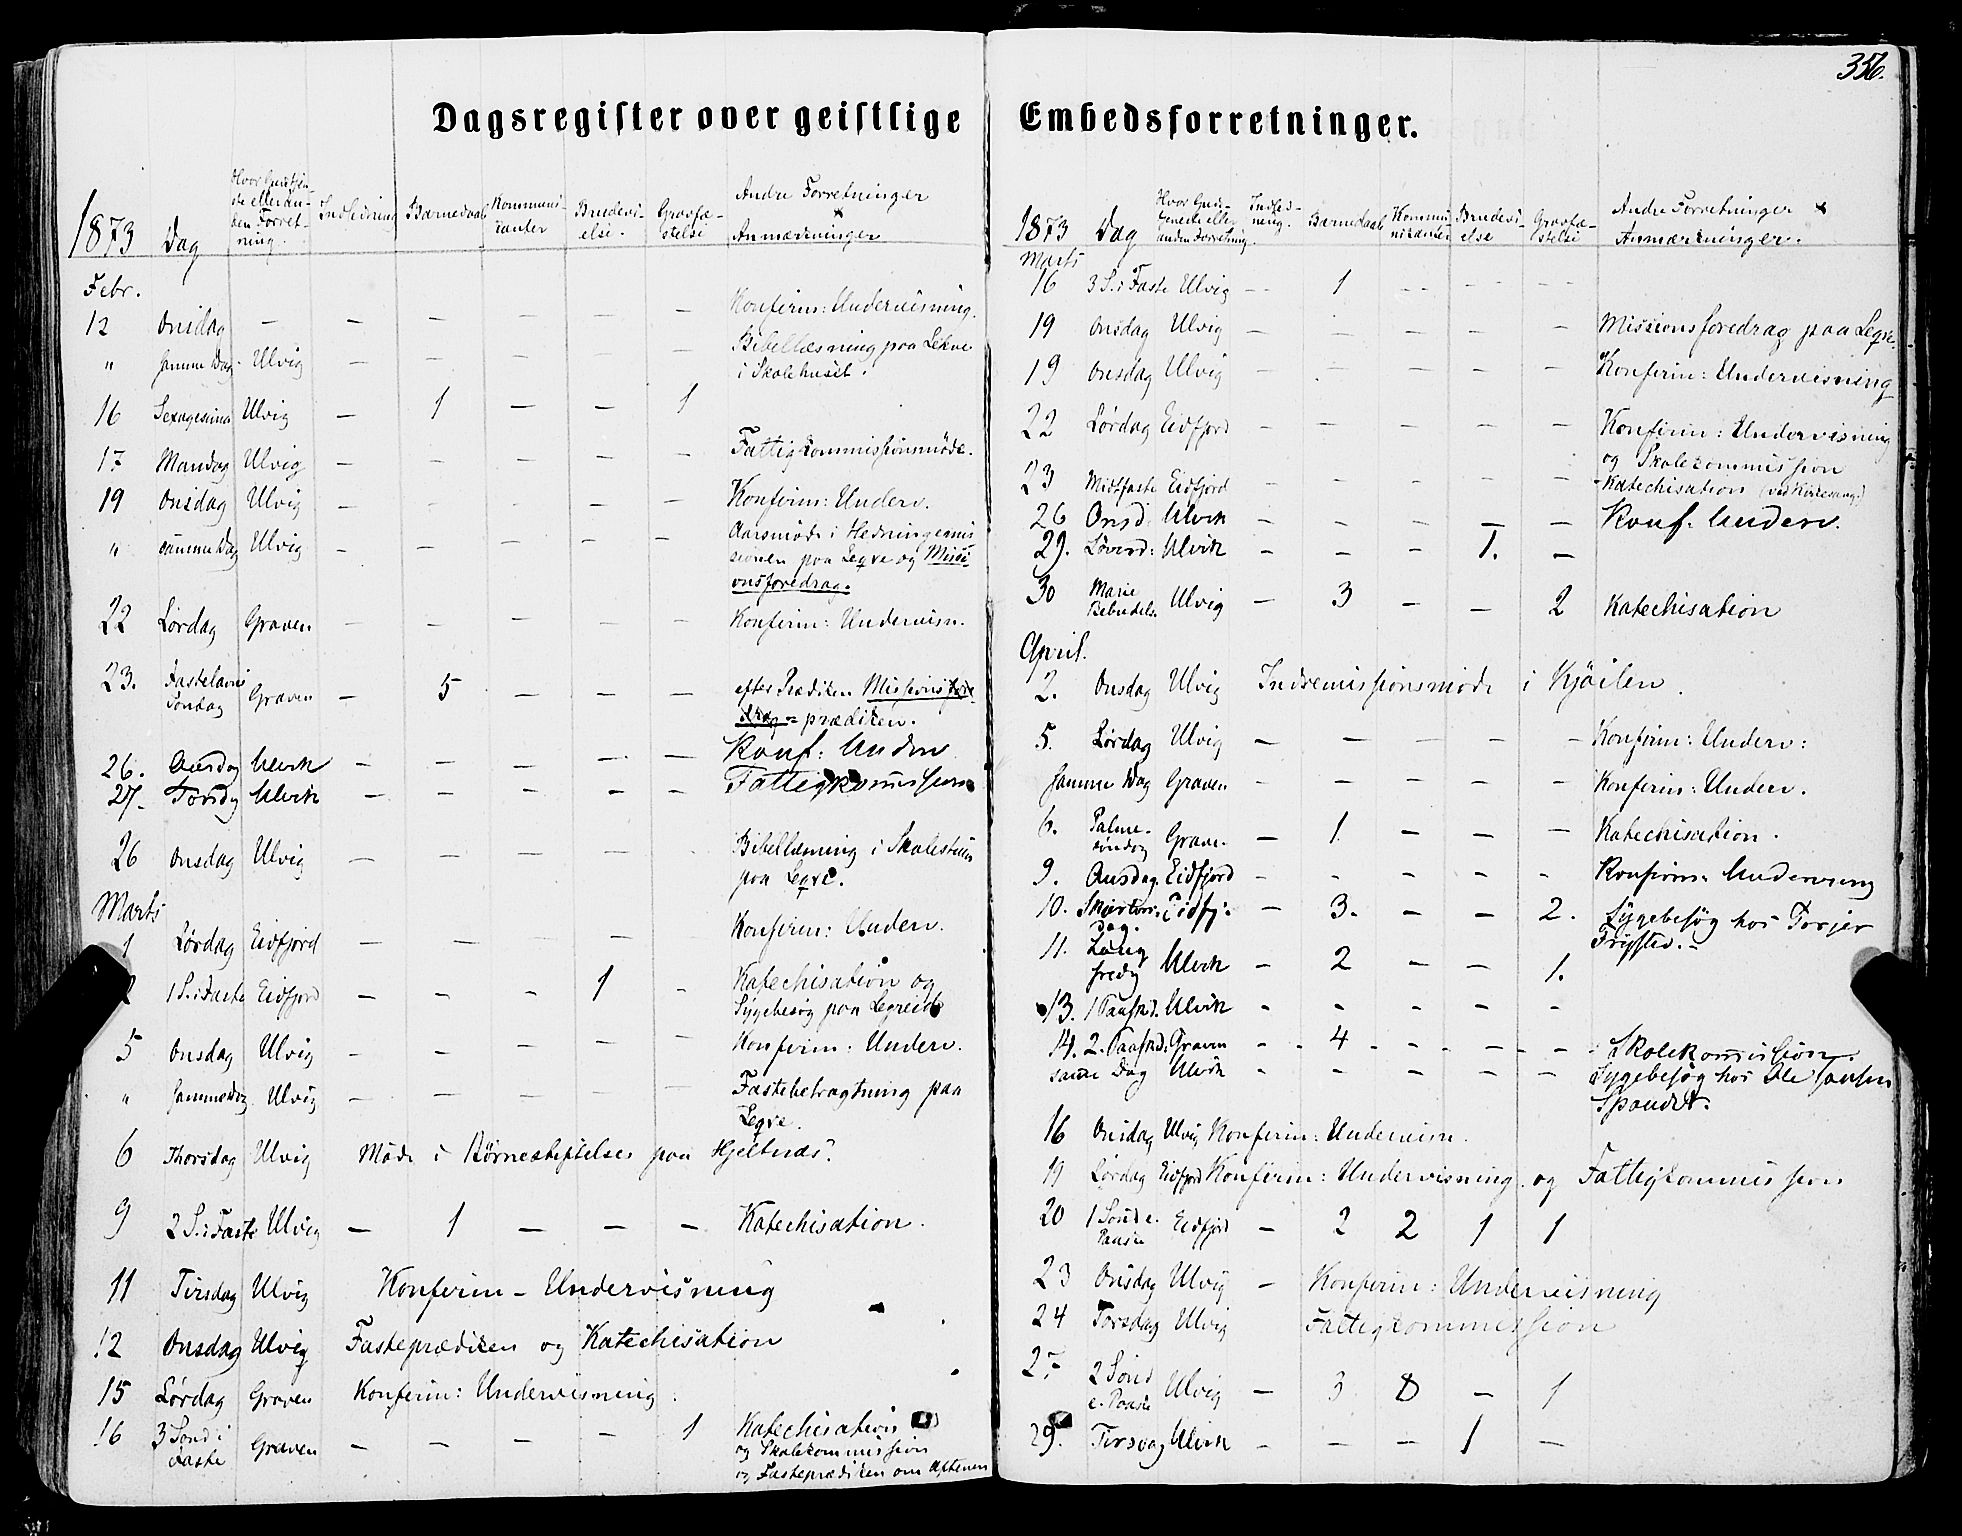 356.
Dagsregister over geistlige Embedsforretninger.
1873 Dag Hvor Gudstjeneste eller anden Forretning. Indledning Barnedaab Kommunikanter Brudevielse. Gravfæstelse Andre Forretninger & Anmærkninger
Febr.
12 Onsdag — — — — — — Konfirm: Undervisning.
" Samme Dag Ulvig — — — — — Bibellæsning paa Lekve
i Skolehuset.
16 Sexagesima Ulvig — 1 — — 1
17 Mandag Ulvig — — — — — Fattigkommissionsmøde.
19 Onsdag Ulvig — — — — — Konfirm: Underv.
" samme Dag Ulvig — — — — — Aarsmøde i Hedningemis
sionen paa Leqve og Missi-
onsforedrag.
22 Lørdag Graven — — — — — Konfirm: Undervisn.
23. Fastelavns
Søndag Graven — 5 — — — efter Prædiken Missions
= prædiken.
26. Onsdag Ulvik — — — — — Konf: Underv
27. Torsdg Ulvik — — — — — Fattigkommission
26 Onsdag Ulvig — — — — Bibellæsning i Skolestuen
paa Leqve.
Marts
1 Lørdag Eidfjord — — — — — Konfirm: Underv.
1 S. i Faste Eidfjord — — — 1 - Katechisation og
Sygebesøg paa Legreid
5 Onsdag Ulvig — — — — — Konfirm: Underv.
" Samme Dag Ulvig — — — — — Fastebetragtning paa
Leqve.
6 Thorsdag Ulvig Møde i Børnestiftelses paa Hjeltnæs.
9 2 S. i Faste Ulvig — 1 — — — Katechisation.
11 Tirsdag Ulvig Konfirm - Undervisning
12 Onsdag Ulvig Fasteprædiken og Katechisation
15 Lørdag Graven Konfirm: Undervisning.
16 3 Sønd i
Faste Graven — — — — 1 Katechisation
og Skolekommission
og Fasteprædiken om Aftenen
1873 Dag Hvor Gudstjeneste eller anden Forretning. Indledning. Barnedaab Kommunikanter Brudevielse Gravfæstelse Andre Forretninger & Anmærkninger.
Marts
16 3 S. i Faste Ulvig -- 1 -- -- -- --
19 Onsdag Ulvig — — — — — Missionsforedrag paa Leqve.
19 Onsdag Ulvig — — — — — Konfirm: Undervisning
22 Lørdag Eidfjord — — — — — Konfirm: Undervisning
og Skolekommission
23 Midtfaste Eidfjord — — — — — Katechisation (ved Kirkesang.)
26 Onsd. Ulvik — — — — — Konf. Underv.
29. Løverd: Ulvik — — — 1. —
30 Marie
Bebudels. Ulvig — 3 — — 2 Katechisation
April.
2. Onsdag Ulvig Indremissionsmøde i Kjøilen.
5. Lørdag Ulvig — — — — — Konfirm: Underv:
Samme Dag Graven — — — — — Konfirm: Underv.
6. Palme-
søndag Grave. — 1. — — — Katechisation.
9. Onsdag. Eidfjord - - - - - Konfirm: Undervisng
10. Skjærtors:
dag. Eidfj: — 3. — — 2. Sygebesøg hos Torjer
11. Lang
fredg Ulvik — 2 — — 1.
13. 1 Paaskd. Ulvik - - - - -
14. 2. Paaskd: Graven - 4 - - - Skolekommission.
samme Dag Ulvik - - - — — Sygebesøg hos Ole Jonsen
16 Onsdag Ulvig Konfirm: Undervisn.
19 Lørdag Eidfjord Konfirm: Undervisning. og Fattigkommission
20 1 Sønd e.
Paaske Eidfjord — 2 2 1 1
23 Onsdag Ulvig — Konfirm: Undervisning
24 Torsdag Ulvig Fattigkommission
27 2 Sønd
e. Paaske Ulvig — 3 8 — 1
29. Tirsdag Ulvik — — — 1 —